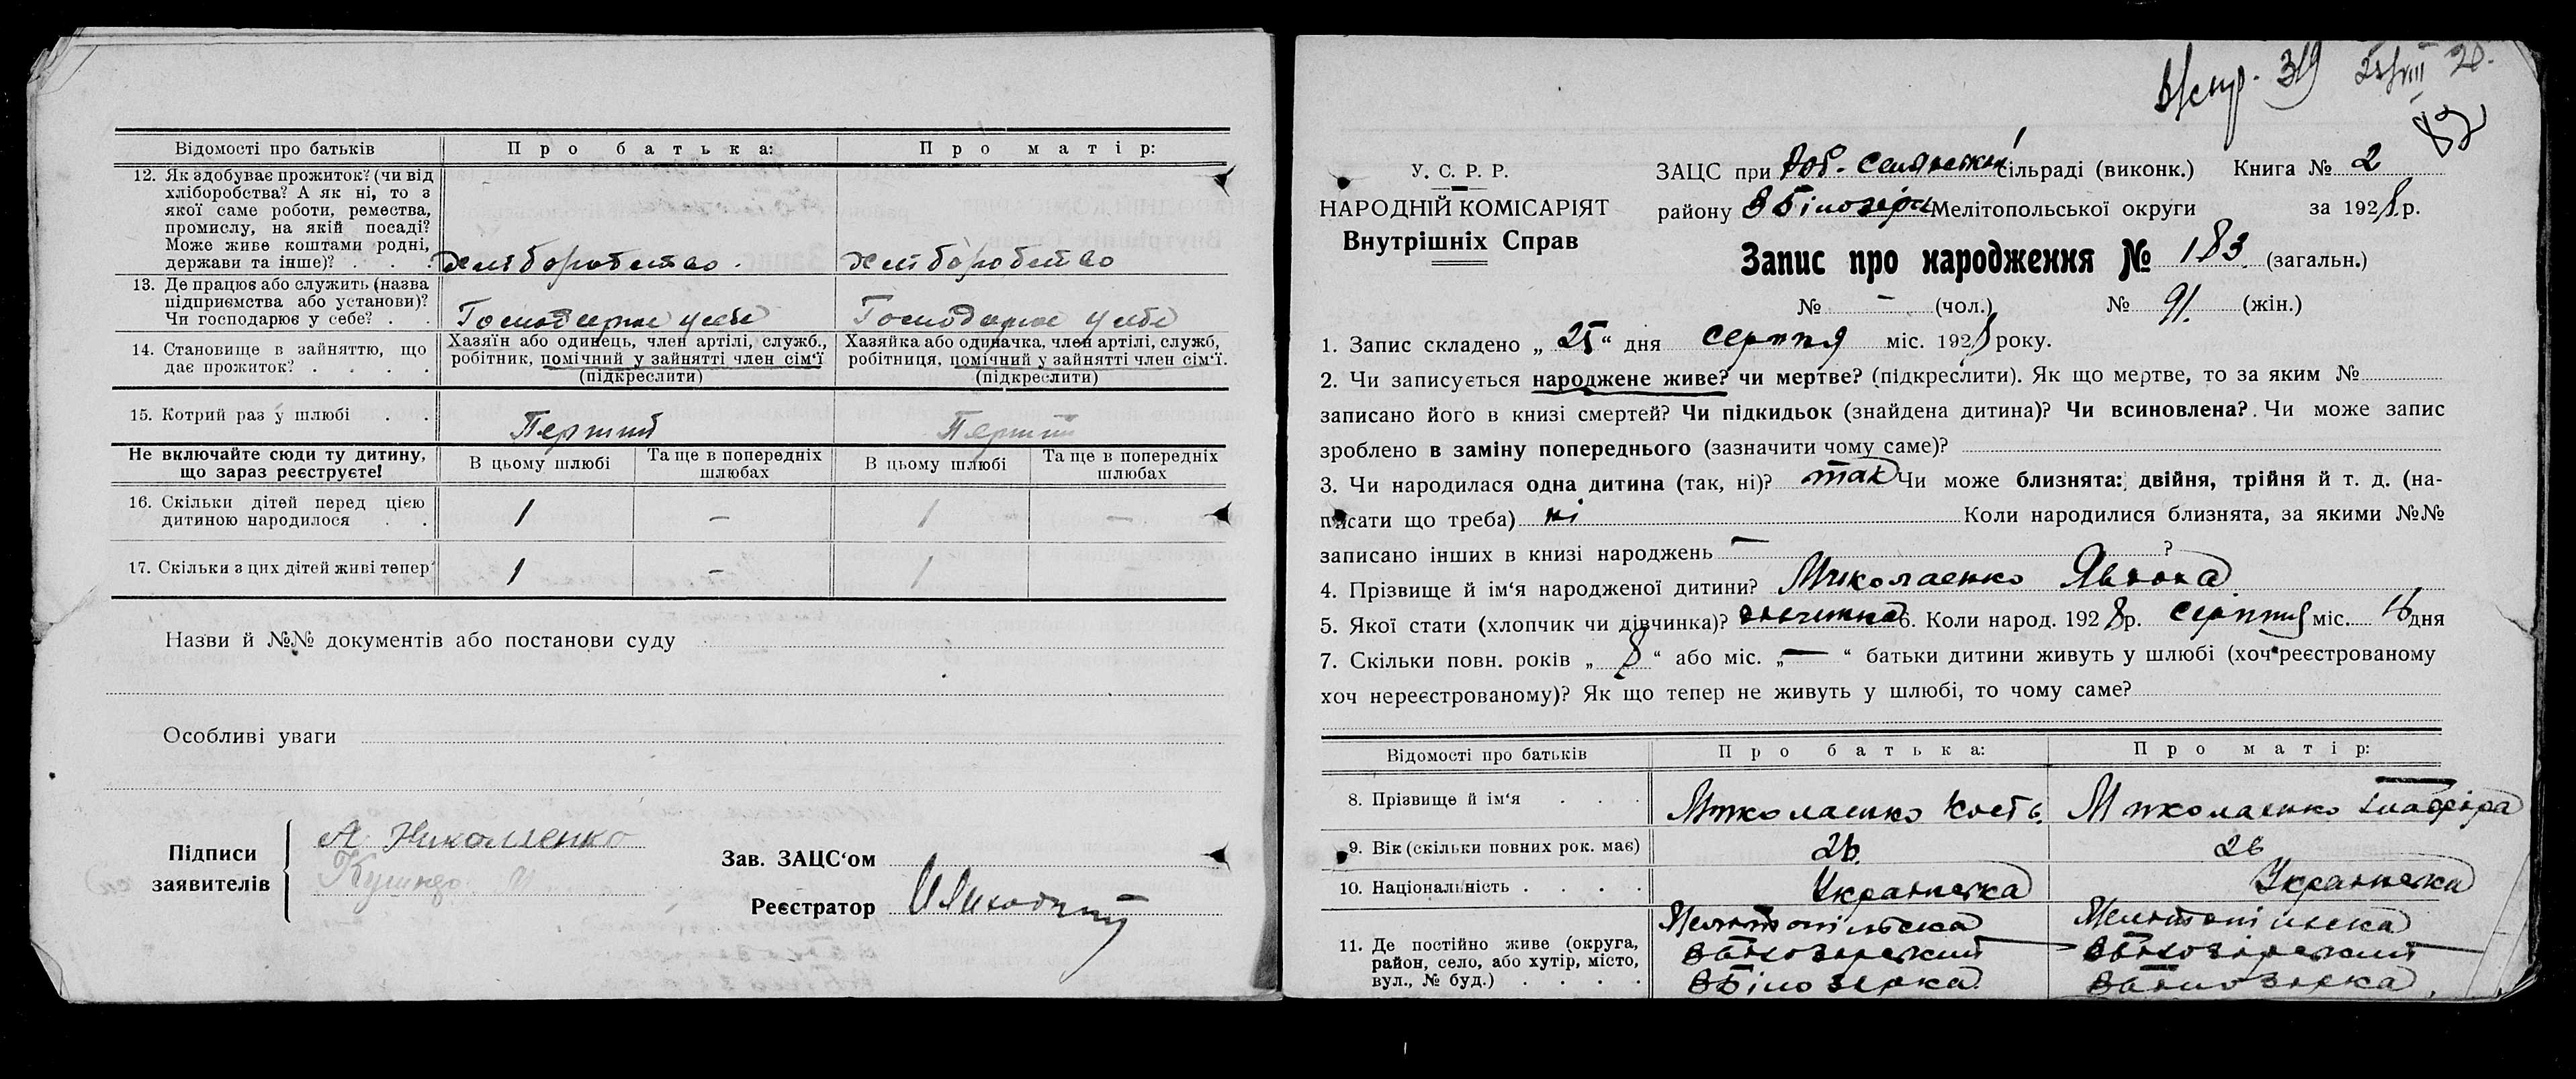 Відомості про батьків
Про батька:
Про матір:
12. Як здобуває прожиток? (чи від
хліборобства? А як ні, то з
якої саме роботи, ремества,
промислу, на якій посаді?
Може живе коштами родні,
держави та інше)? . . .
хліборобство.
хліборобство
13. Де працює або служить (назва
підприємства або установи)?
Чи господарює у себе? . .
Господарює у себе
Господарює у себе
14. Становище в зайняттю, що
дає прожиток? . . . .
Хазяїн або одинець, член артілі, служб.,
робітник, помічний у зайнятті член сім'ї
(підкреслити)
Хазяйка або одиначка, член артілі, служб,
робітниця, помічний у зайнятті член сім'ї.
(підкреслити)
15. Котрий раз у шлюбі . .
Перший
Перший
Не включайте сюди ту дитину,
що зараз реєструєте!
В цьому шлюбі
Та ще в попередніх
шлюбах
В цьому шлюбі
Та ще в попередніх
шлюбах
16. Скільки дітей перед цією
дитиною народилося . .
1 – 1 –
17. Скільки з цих дітей живі тепер
1 – 1 –
Назви й №№ документів або постанови суду
Особливі уваги
Підписи
заявителів
А. Николаенко
Зав. ЗАЦС'ом
Реєстратор
В/спр. 319
82
У. С. Р. Р.
НАРОДНІЙ КОМІСАРІЯТ
Внутрішніх Справ
ЗАЦС при сільраді (виконк.) Книга № 2
району В Білозірськ Мелітопольської округи за 1928 р.
Запис про народження № 183 (загальн.)
№ – (чол.) № 91. (жін.)
1. Запис складено „ 25 “ дня серпня міс. 1928 року.
2. Чи записується народжене живе? чи мертве? (підкреслити). Як що мертве, то за яким №
записано його в книзі смертей? Чи підкидьок (знайдена дитина)? Чи всиновлена? Чи може запис
зроблено в заміну попереднього (зазначити чому саме)?
3. Чи народилася одна дитина (так, ні)? так Чи може близнята: двійня, трійня й т. д. (на-
писати що треба) ні Коли народилися близнята, за якими №№
записано інших в книзі народжень – ?
4. Прізвище й ім'я народженої дитини? Миколаенко Явдоха
5. Якої стати (хлопчик чи дівчинка)? дівчинка 6. Коли народ. 1928 р. серпня міс. 16 дня
7. Скільки повн. років „ 8 “ або міс. „ — “ батьки дитини живуть у шлюбі (хоч реєстрованому
хоч нереєстрованому)? Як що тепер не живуть у шлюбі, то чому саме?
Відомості про батьків
Про батька:
Про матір:
8. Прізвище й ім'я . . .
Миколаенко Кость.
Миколаенко
9. Вік (скільки повних рок. має)
26.
26
10. Національність . . . .
Українська
Українська
11. Де постійно живе (округа,
район, село, або хутір, місто,
вул., № буд.) . . . .
Мелітопільська
В Білозірський
В Білозірка
Мелітопільська
В Білозірський
В Білозірка